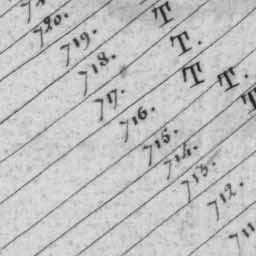 720.
719. T
718. T.
717. T
716. T.
715. T
714.
713.
712.
711